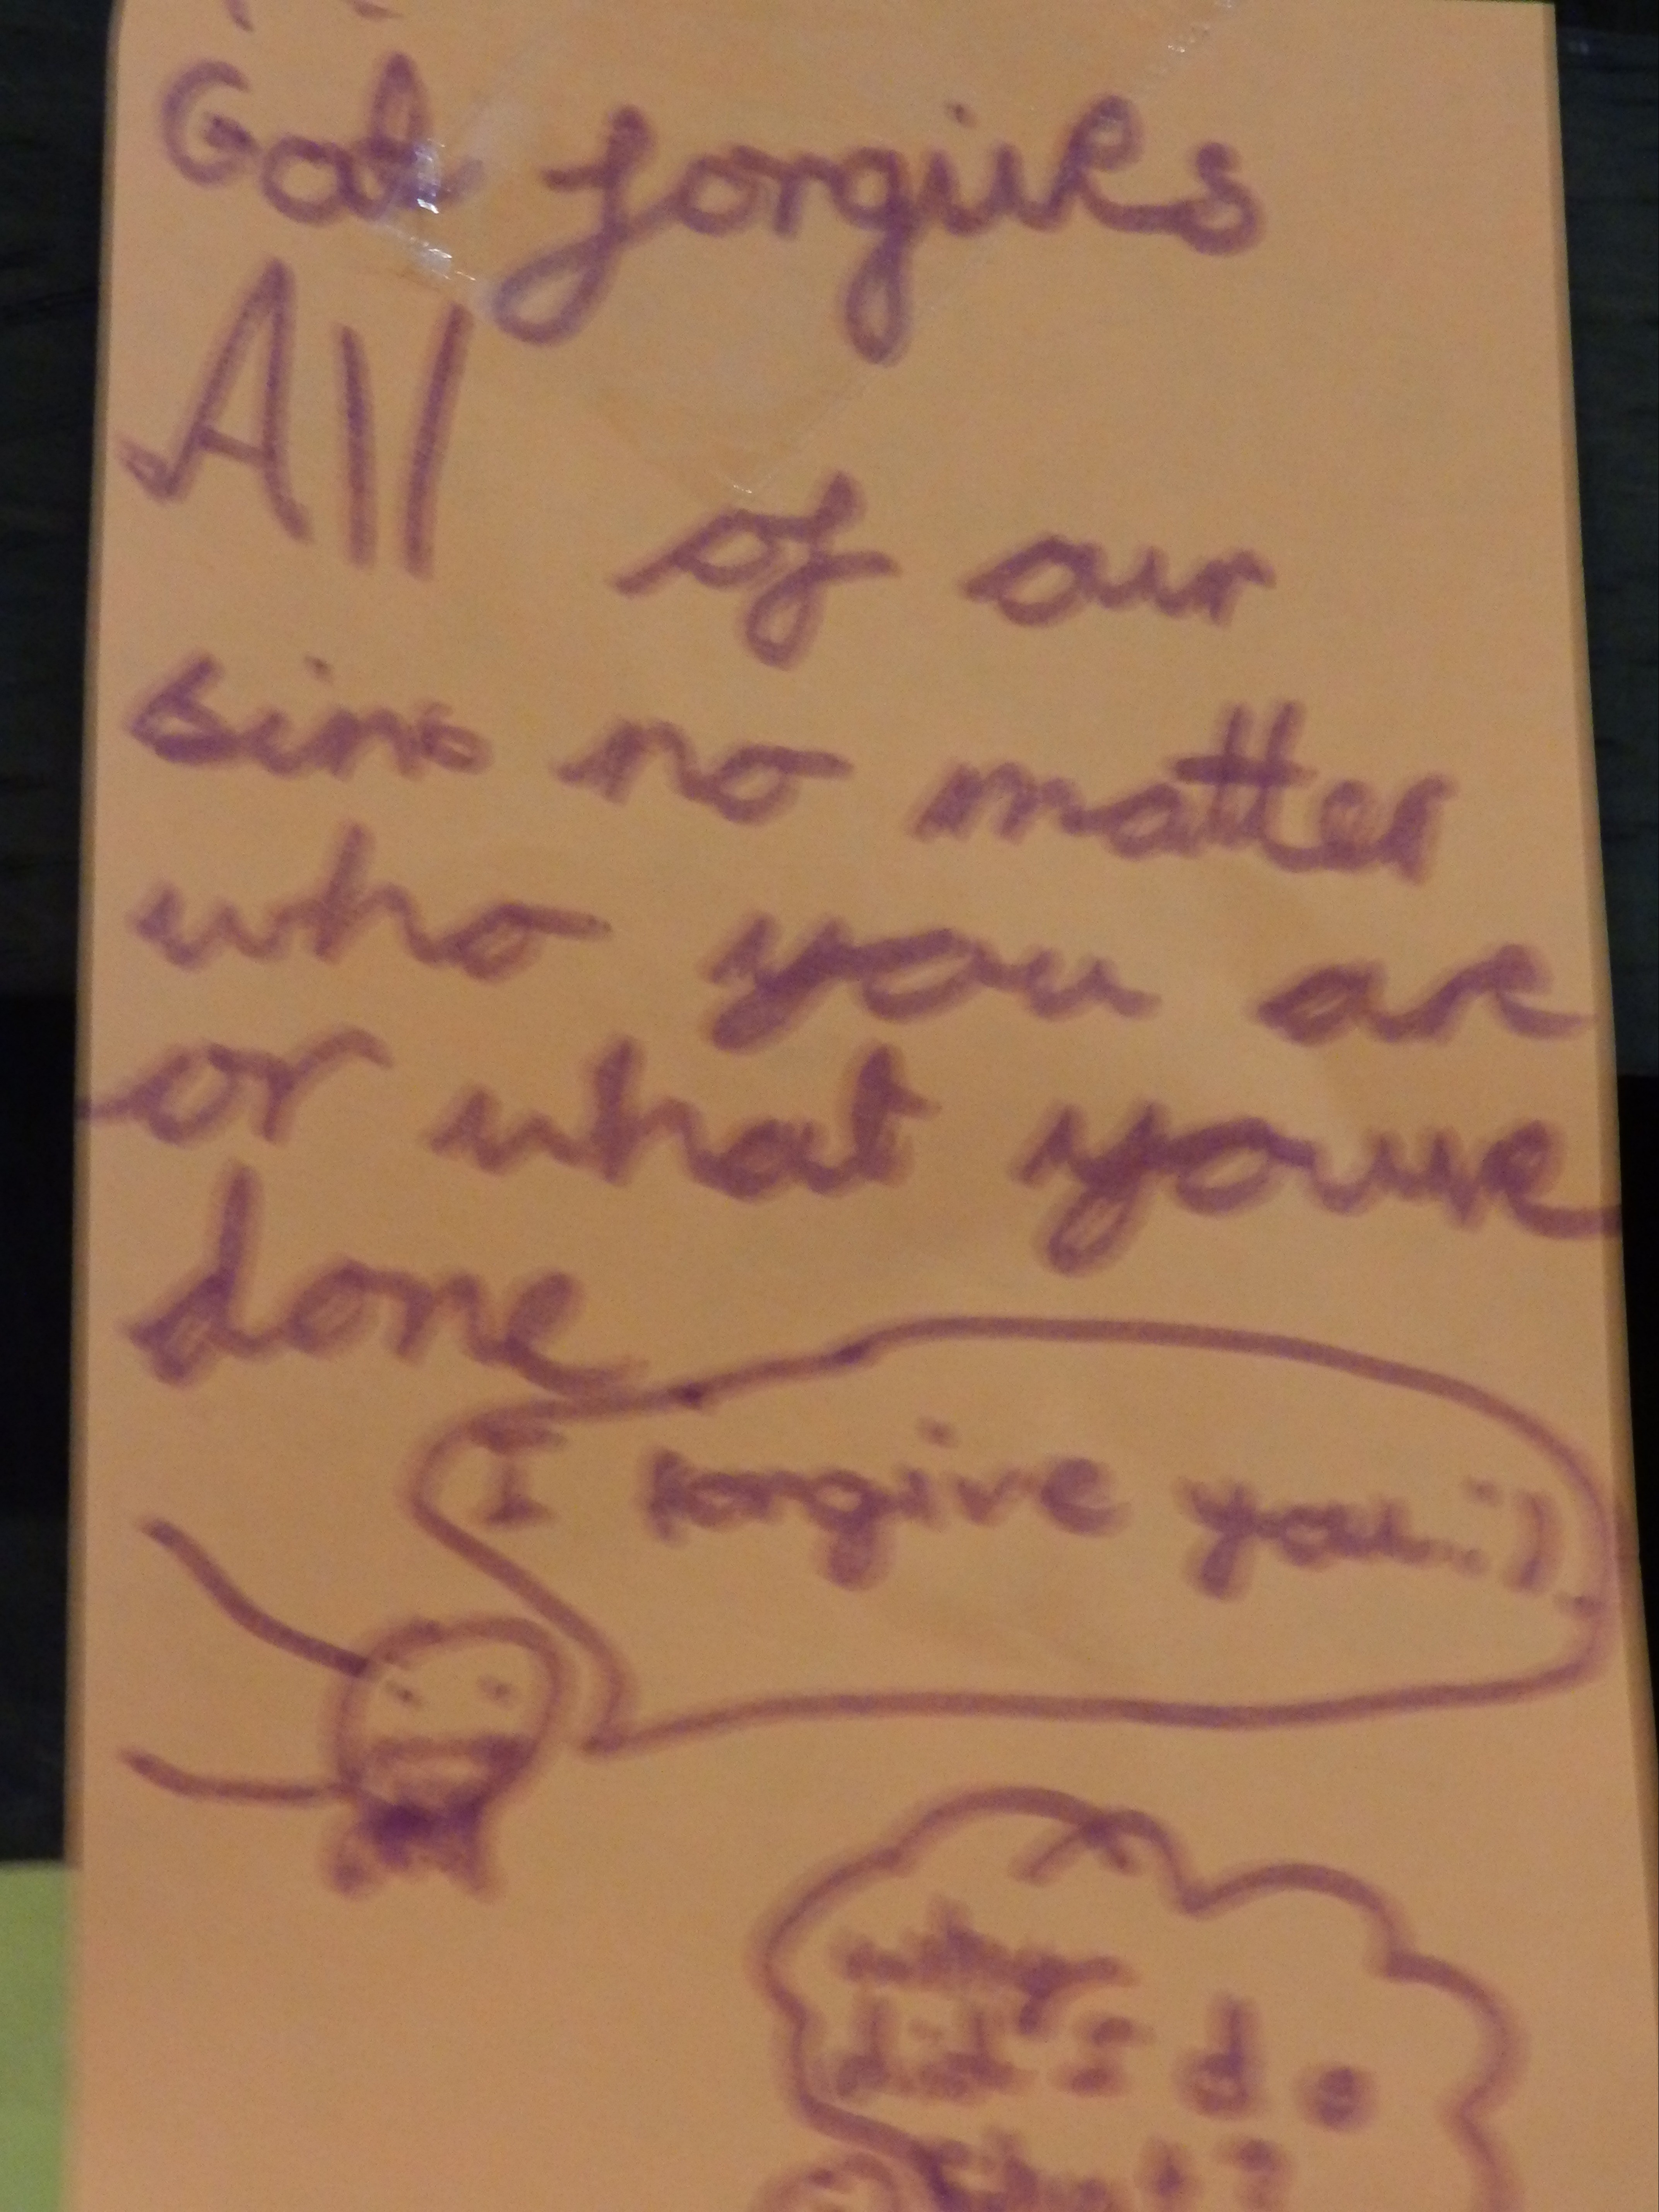 God forgives
All of our
sins no matter
who you are
or what youve
done
I forgive you :)
why
did I do
that?